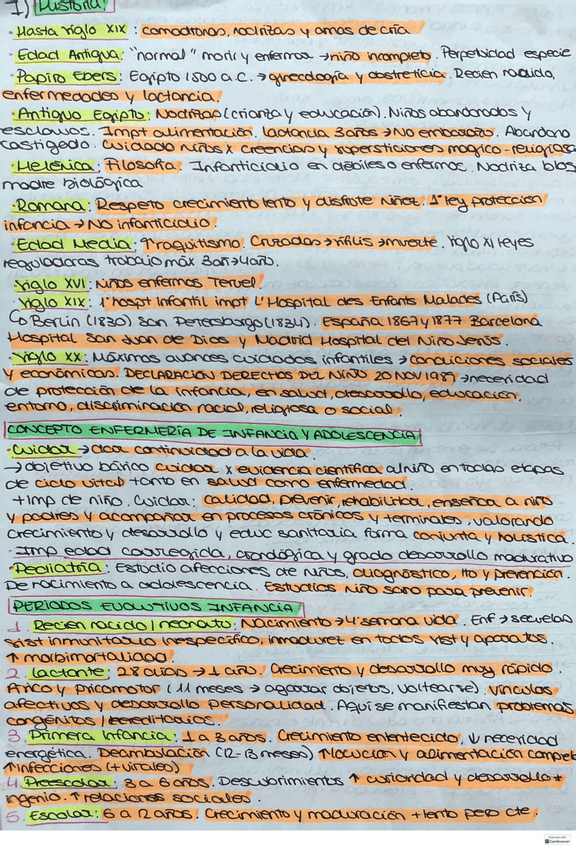 1) HISTORIA:
· Hasta siglo XIX: comadronas, nodrizas y amas de cría
· Edad Antigua: "normal" morir y enfermos → niño incompleto. Perpetuidad especie
· Papiro Ebers: Egipto 1500 a.C. → ginecología y obstetricia. Recien nacido,
enfermedades y lactancia.
· Antiguo Egipto: Nodrizas (crianza y educación). Niños abandonados y
esclavos. Impt alimentación. Lactancia 3 años → No embarazo. Abandono
castigado. Cuidado niños x creencias y supersticiones magico-religiosa
· Helénica: Filosofía. Infanticidio en débiles o enfermos. Nodriza
madre biológica
· Romana: Respeto crecimiento lento y disfrute niñez. 1ª ley protección
infancia → No infanticidio.
· Edad Media: ↑raquitismo. Cruzadas → sífilis → muerte. Siglo XI leyes
reguladoras trabajo máx
· Siglo XVI: Niños enfermos Teruel.
· Siglo XIX: 1º hospt infantil impt L'Hospital des Enfants Malades (París)
↳ Berlín (1830) San Petersburgo (1834). España 1867 y 1877 Barcelona
Hospital San Juan de Dios y Madrid Hospital del Niño Jesús.
· Siglo XX: Máximos avances cuidados infantiles → condiciones sociales
y económicas. DECLARACIÓN DERECHOS DEL NIÑO 20 NOV 1989 → necesidad
de protección de la infancia, en salud, desarrollo, educación,
entorno, discriminación racial, religiosa o social.
CONCEPTO ENFERMERÍA DE INFANCIA Y ADOLESCENCIA
· Cuidar → dar continuidad a la vida.
→ objetivo básico cuidar x evidencia científica al niño en todas etapas
de ciclo vital tanto en salud como enfermedad.
+ Imp de niño. Cuidar: calidad, prevenir, rehabilitar, enseñar a niño
y padres y acompañar en procesos crónicos y terminales, valorando
crecimiento y desarrollo y educ sanitaria forma conjunta y holística.
- Imp edad corregida, cronológica y grado desarrollo madurativo
· Pediatría: Estudio afecciones de niños, diagnóstico, tto y prevención.
De nacimiento a adolescencia. Estudios niño sano para prevenir.
PERIODOS EVOLUTIVOS INFANCIA
1. Recien nacido/neonato: Nacimiento → 4ª semana vida. Enf → secuelas
sist inmunitario inespecífico, inmadurez en todos sist y aparatos.
↑ morbimortalidad.
2. Lactante 28 días → 1 año. Crecimiento y desarrollo muy rápido.
Físico y psicomotor (11 meses → agarrar objetos, voltearse). Vínculos
afectivos y desarrollo personalidad. Aquí se manifiestan problemas
congénitos / hereditarios.
3. Primera Infancia: 1 a 3 años. Crecimiento enlentecido, ↓ necesidad
energética. Deambulación (12-13 meses) ↑locución y alimentación complet
↑infecciones (+ virales)
4. Preescolar 3 a 6 años. Descubrimientos ↑ curiosidad y desarrollo *
ingenio. ↑ relaciones sociales.
5. Escolar: 6 a 12 años. Crecimiento y maduración + lento pero cte.
CamScanner